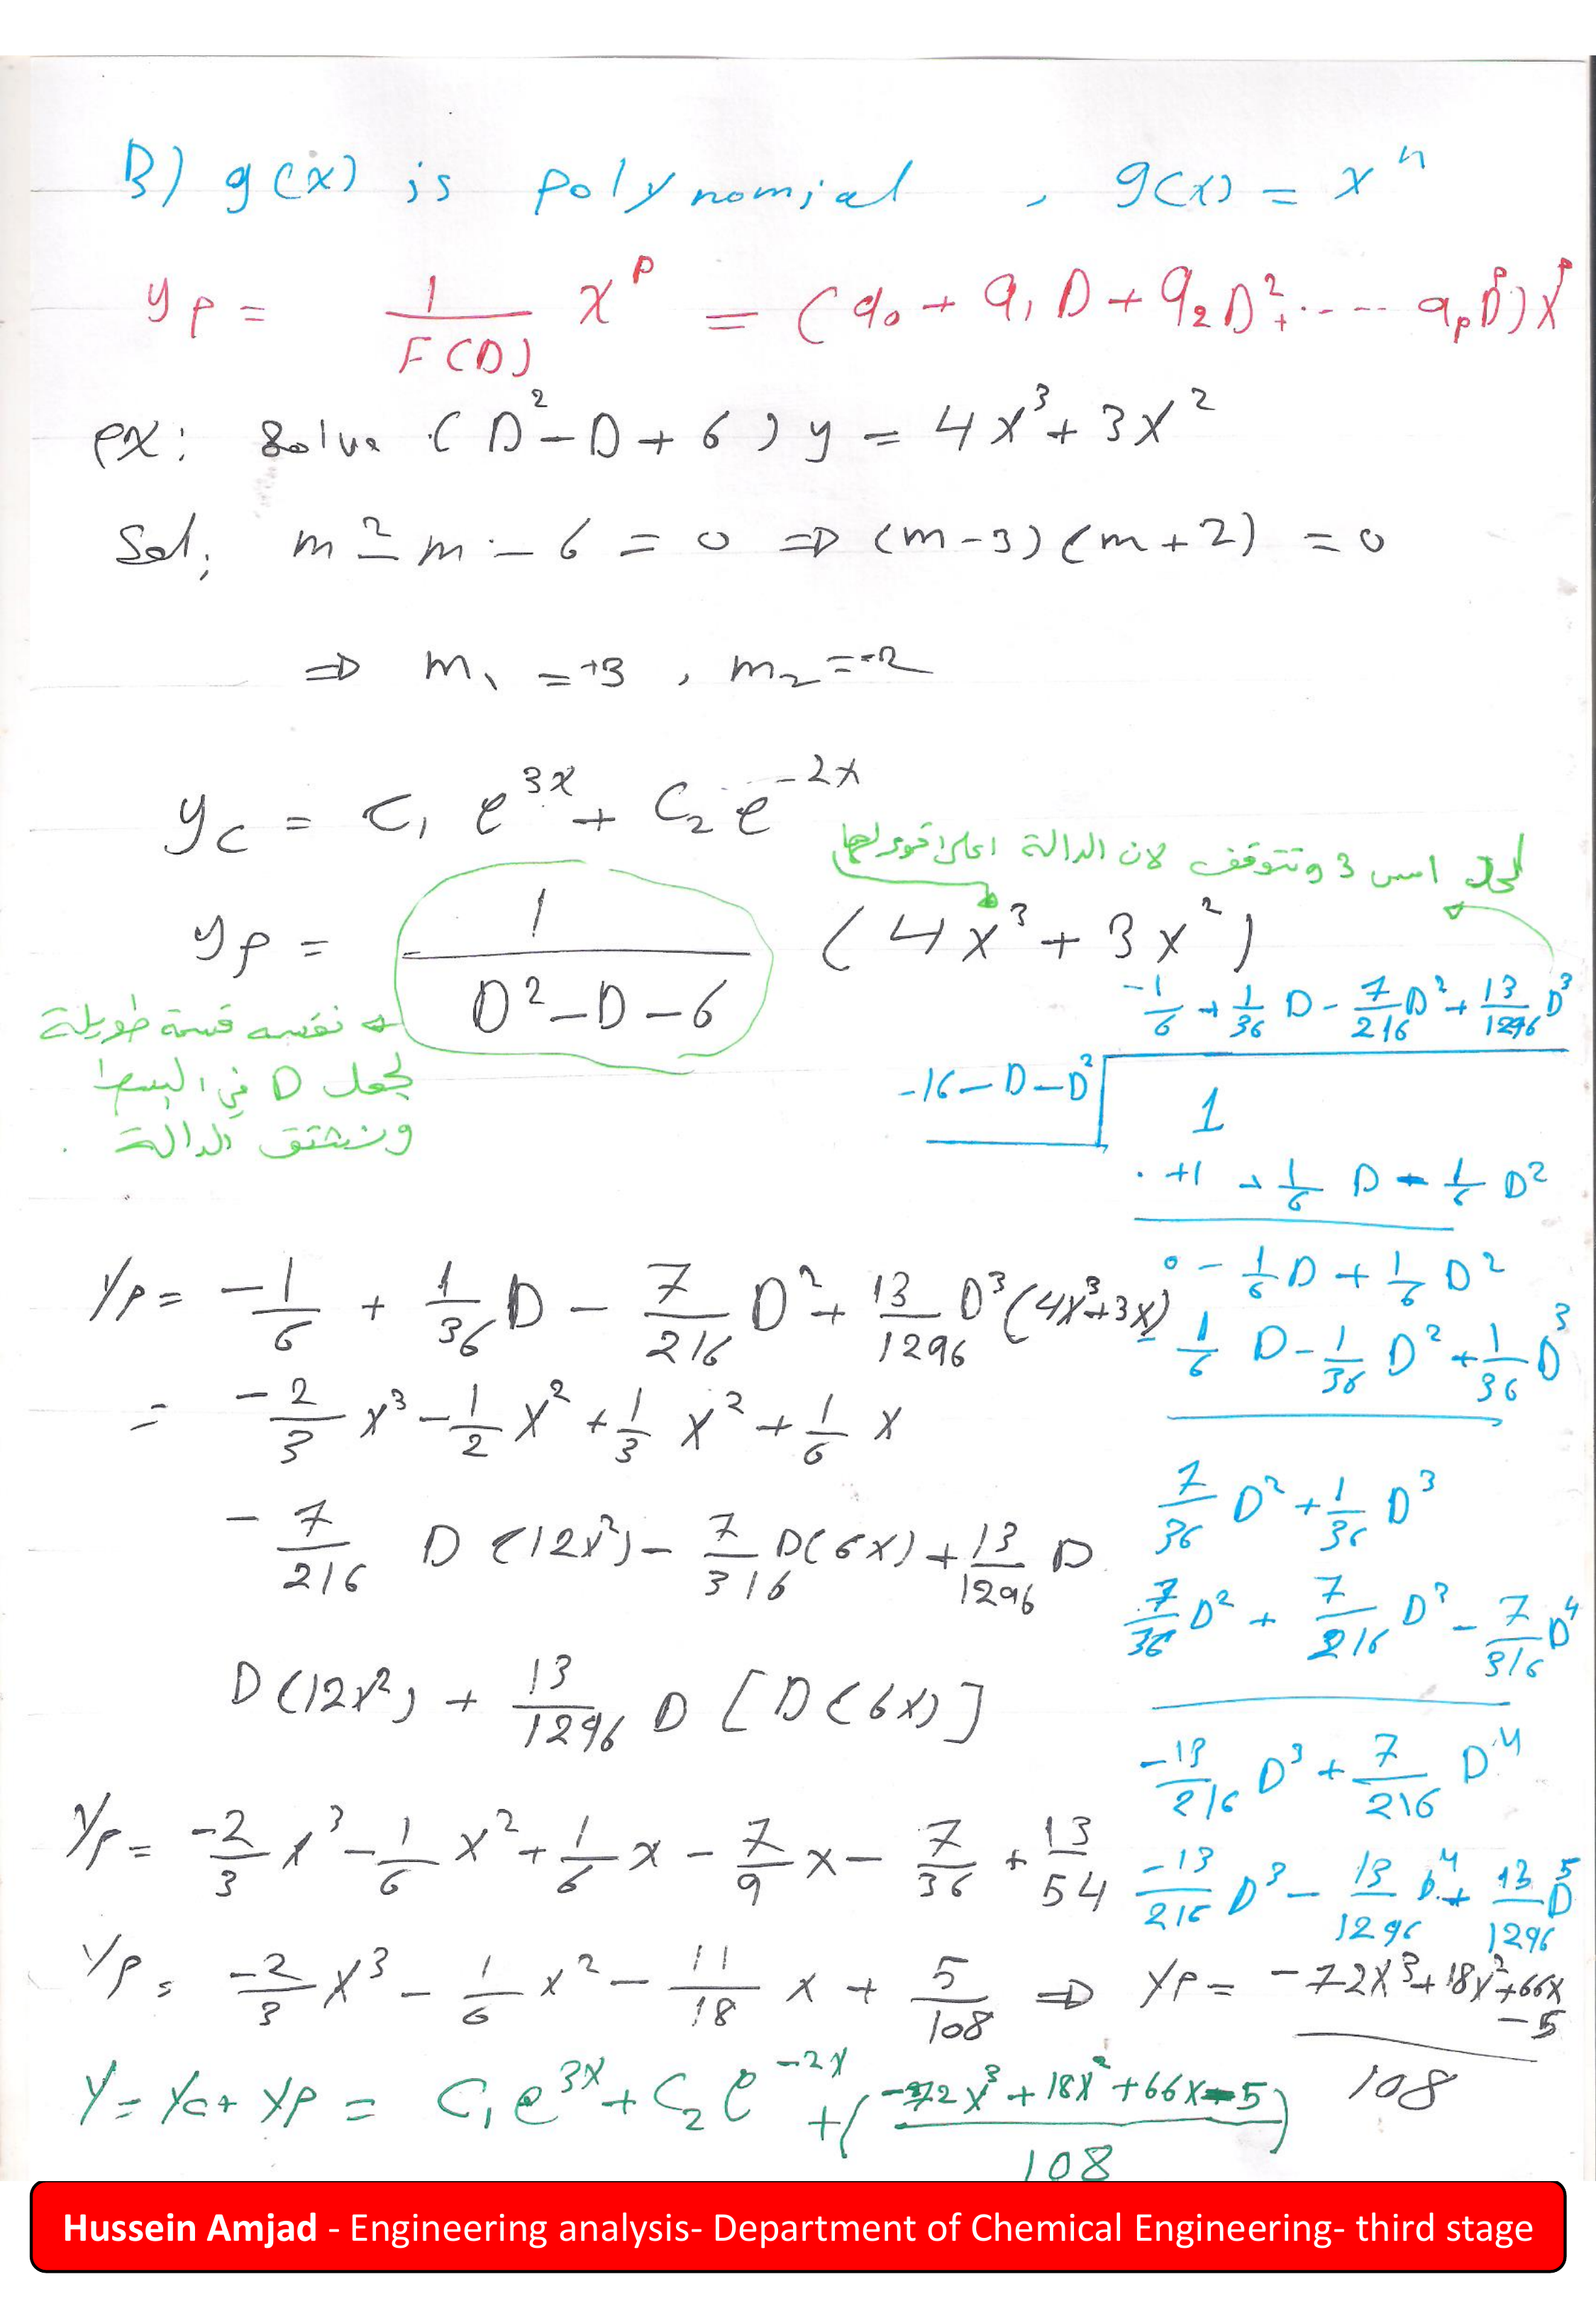 B) g(x) is polynomial , g(x) = x^n
y_p = 1/F(D) x^p = (a_0 + a_1 D + a_2 D^2 + ---- a_p D^p) x^p
ex: solve (D^2 - D + 6) y = 4x^3 + 3x^2
Sol: m^2 - m - 6 = 0 ⇒ (m-3)(m+2) = 0
⇒ m_1 = +3 , m_2 = -2
y_c = c_1 e^{3x} + c_2 e^{-2x}
لحد اسس 3 ونتوقف لان الدالة اعلى قوى لها
y_p = 1/(D^2 - D - 6) (4x^3 + 3x^2)
نقسمه قسمة طويلة
لجعل D في البسط
ونشتق الدالة .
-1/6 + 1/36 D - 7/216 D^2 + 13/1296 D^3
-16 - D - D^2 | 1
+1 + 1/6 D - 1/6 D^2
0 - 1/6 D + 1/6 D^2
1/6 D - 1/36 D^2 + 1/36 D^3
7/36 D^2 + 1/36 D^3
7/36 D^2 + 7/216 D^3 - 7/316 D^4
-13/216 D^3 + 7/216 D^4
-13/216 D^3 - 13/1296 D^4 + 13/1296 D^5
y_p = -1/6 + 1/36 D - 7/216 D^2 + 13/1296 D^3 (4x^3 + 3x)
= -2/3 x^3 - 1/2 x^2 + 1/3 x^2 + 1/6 x
-7/216 D (12x^2) - 7/316 D(6x) + 13/1296 D
D(12x^2) + 13/1296 D [D(6x)]
y_p = -2/3 x^3 - 1/6 x^2 + 1/6 x - 7/9 x - 7/36 + 13/54
y_p = -2/3 x^3 - 1/6 x^2 - 11/18 x + 5/108 ⇒ y_p = (-72x^3 + 18x^2 + 66x - 5)/108
y = y_c + y_p = c_1 e^{3x} + c_2 e^{-2x} + ((-72x^3 + 18x^2 + 66x - 5)/108)
Hussein Amjad - Engineering analysis- Department of Chemical Engineering- third stage